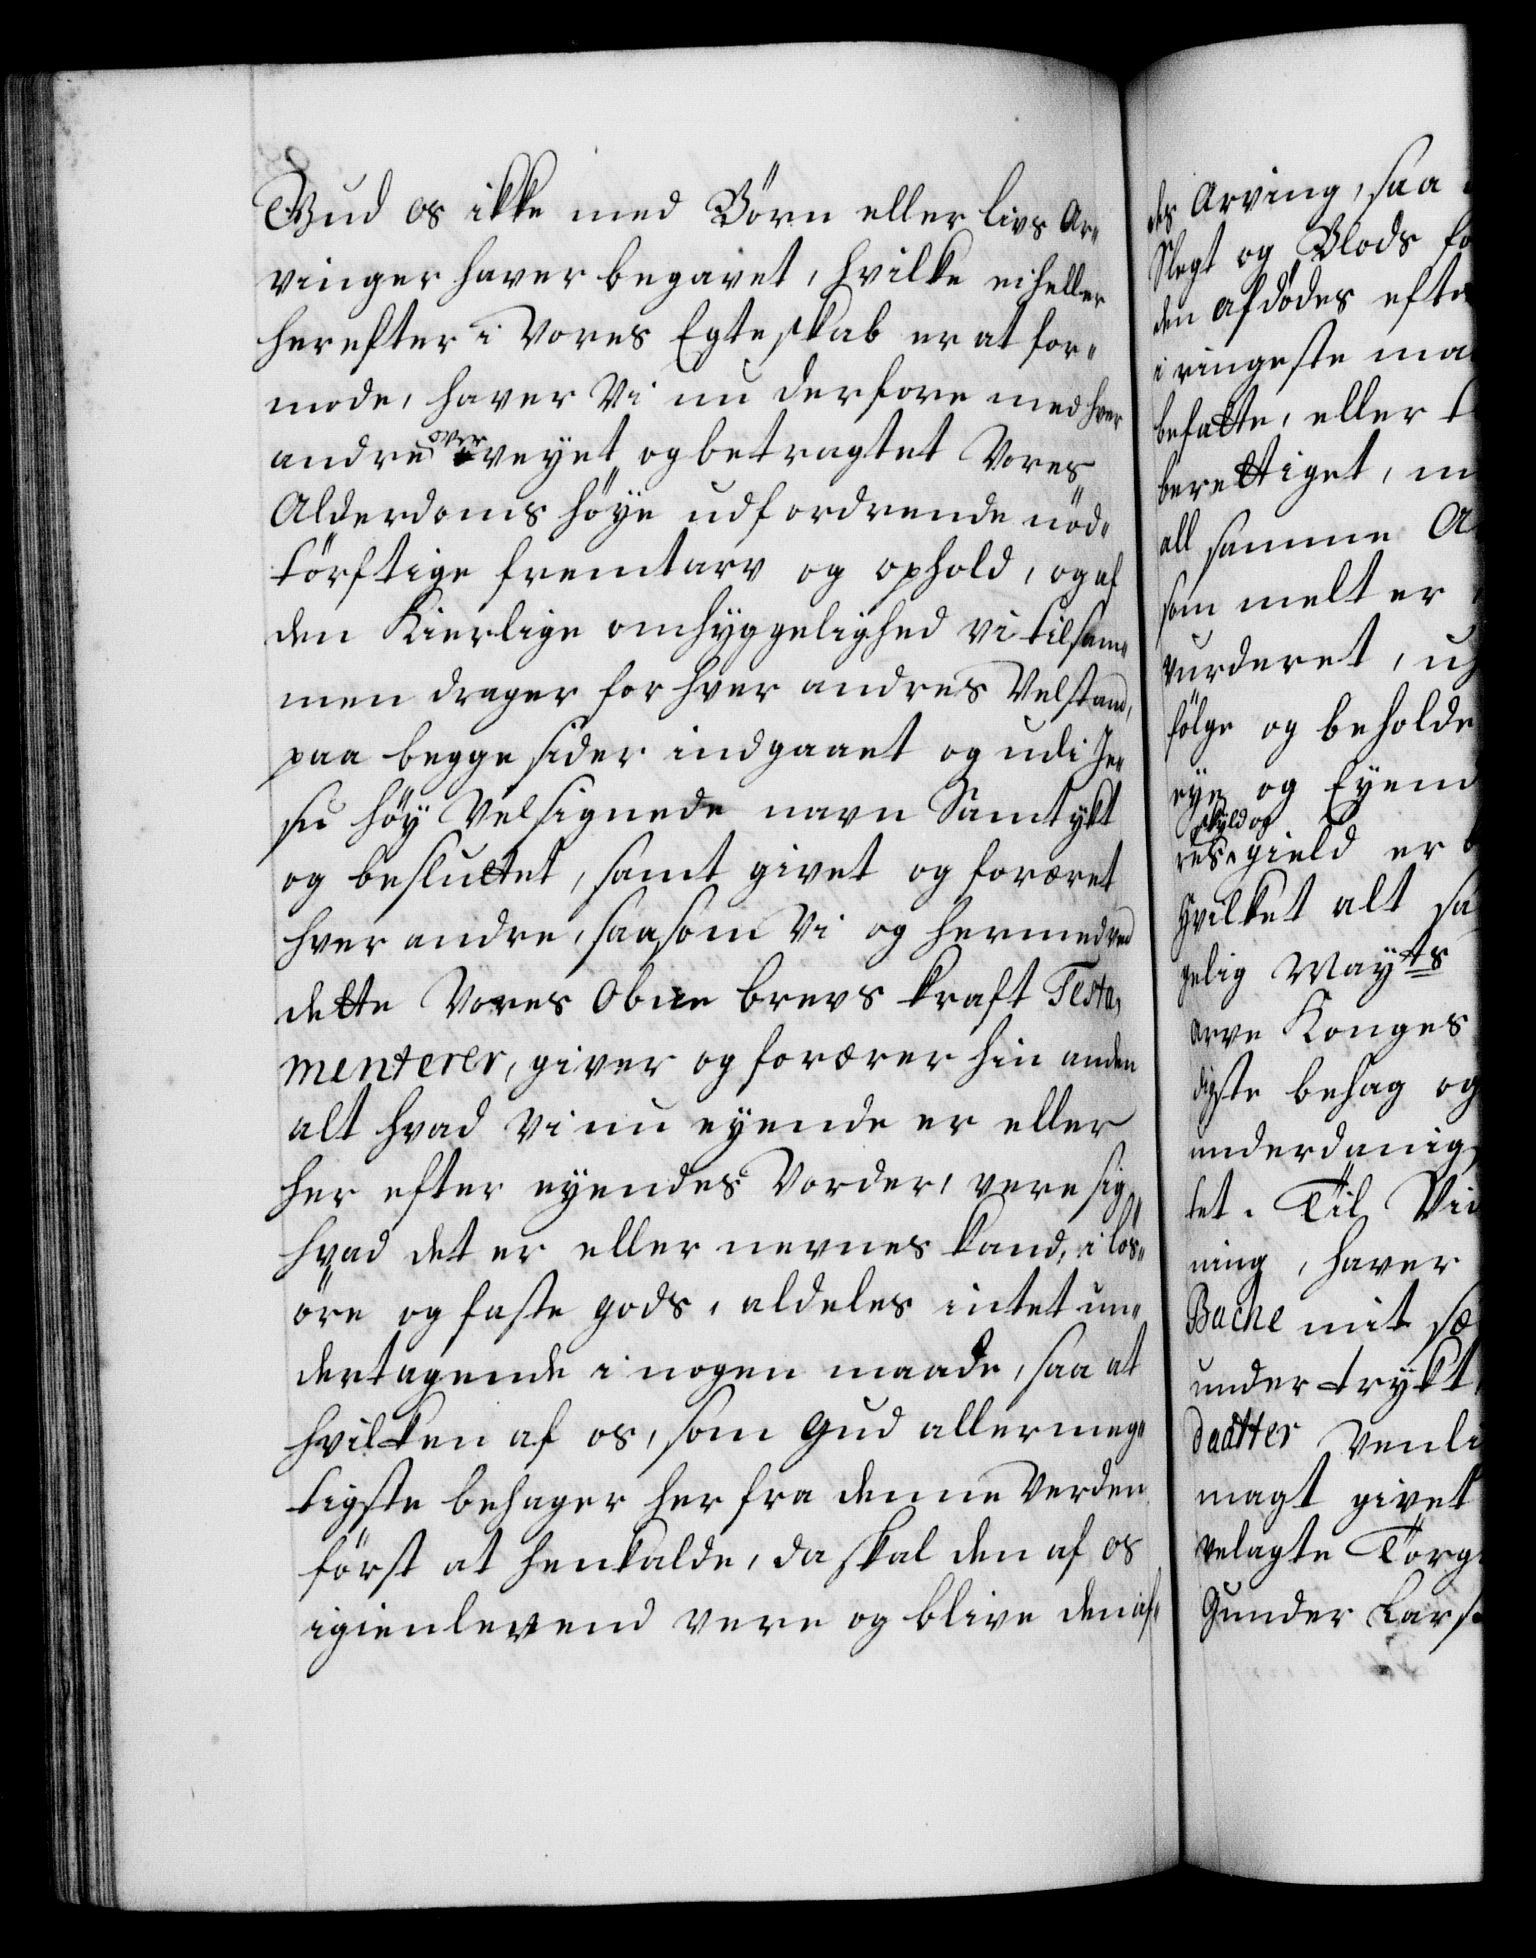 Gud os ikke med Börn eller livs Ar„
vinger haver begavet, hvilke ei heller
herefter i Vores Egteskab er at for„
mode, haver Vi nu derfore med hver
andre over veyet og betragtet Vores
Alderdoms höye udfordrende nöd„
törftige fremtarv og ophold, og af
den Kierlige omhyggelighed vi tilsam„
men drager for hver andres Velstand,
paa begge sider indgaaet og udi Je„
su höy Velsignede navn Samtykt
og besluttet, samt givet og foræret
hver andre, saasom Vi og hermed ved
dette Vores Obne brevs kraft Testa„
menterer, giver og forærer hin anden
alt hvad vi nu eyende er eller
her efter eyendes Vorder, være sig
hvad det er eller nevnes kand, i lös„
öre og faste gods, aldeles intet un„
dertagende i nogen maade, saa at
hvilken af os, som Gud allermeg„
tigste behager her fra denne Verden
först at henkalde, da skal den af os
igienlevend være og blive den af„
des Arving, saa
Slegt og Blods
den afdödes efte
i ringeste ma
befatte, eller
berettiget, m
all samme A
som melt er
vurderet, u
fölge og beholde
eye og Eyend
skyld og
res gield er
Hvilket alt sa
gelig Mayts
arve Konges
digste behag og
underdanig
tet. Til Vi
ning, haver
Bache mit
under trykt
daatter Venli
magt givet
velagte Törg
Gunder Lars